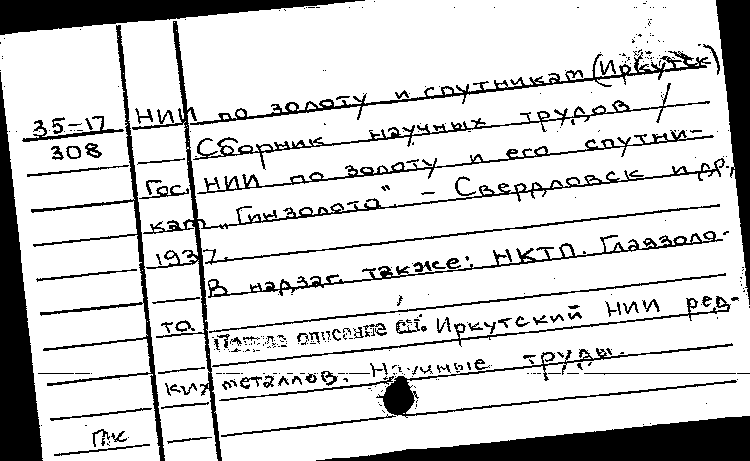 НИИ по золоту и спутникам (Иркутск)
35-17
308
Сборник научных трудов /
Гос. НИИ по золоту и его спутни-
кам „Гинзолото". - Свердловск и др.,
1937.
В надзаг. также: НКТП. Главзоло-
то.
Полное описание см. Иркутский НИИ ред-
ких металлов. Научные труды.
ГАК